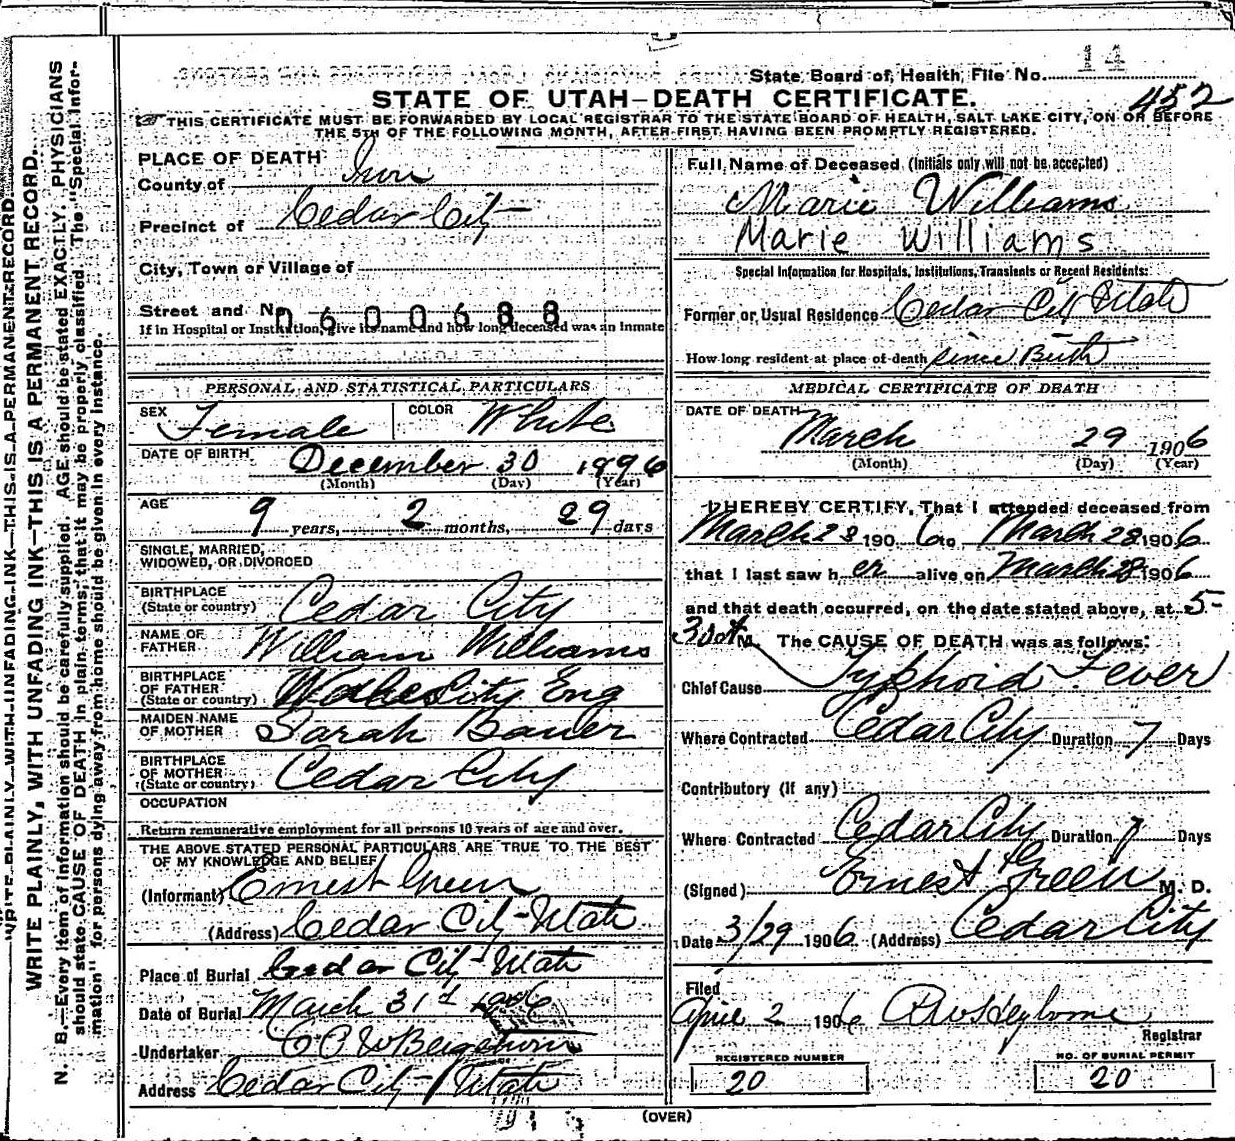 State Board of Health, File No. 14
STATE OF UTAH—DEATH CERTIFICATE.
452
THIS CERTIFICATE MUST BE FORWARDED BY LOCAL REGISTRAR TO THE STATE BOARD OF HEALTH, SALT LAKE CITY, ON OR BEFORE
THE 5TH OF THE FOLLOWING MONTH, AFTER FIRST HAVING BEEN PROMPTLY REGISTERED.
WRITE PLAINLY WITH UNFADING INK—THIS IS A PERMANENT RECORD.
WRITE PLAINLY, WITH UNFADING INK—THIS IS A PERMANENT RECORD.
N. B.—Every item of information should be carefully supplied. AGE should be stated EXACTLY. PHYSICIANS
should state CAUSE OF DEATH in plain terms, that it may be properly classified. The "Special Infor-
mation" for persons dying away from home should be given in every instance.
PLACE OF DEATH
County of Iron
Precinct of Cedar City
City, Town or Village of
Street and N 0600688
If in Hospital or Institution, give its name and how long deceased was an Inmate
PERSONAL AND STATISTICAL PARTICULARS
SEX Female COLOR White
DATE OF BIRTH December 30 1896
(Month) (Day) (Year)
AGE 9 years, 2 months, 29 days
SINGLE, MARRIED,
WIDOWED, OR DIVORCED
BIRTHPLACE
(State or country) Cedar City
NAME OF
FATHER William Williams
BIRTHPLACE
OF FATHER
(State or country) City Eng
MAIDEN NAME
OF MOTHER Sarah Bauer
BIRTHPLACE
OF MOTHER
(State or country) Cedar City
OCCUPATION
Return remunerative employment for all persons 10 years of age and over.
THE ABOVE STATED PERSONAL PARTICULARS ARE TRUE TO THE BEST
OF MY KNOWLEDGE AND BELIEF
(Informant) Ernest Green
(Address) Cedar City Utah
Place of Burial Cedar City Utah
Date of Burial March 31st 1906
Undertaker
Address Cedar City Utah
Full Name of Deceased (Initials only will not be accepted)
Marie Williams
Marie Williams
Special Information for Hospitals, Institutions, Transients or Recent Residents:
Former or Usual Residence Cedar City Utah
How long resident at place of death since Birth
MEDICAL CERTIFICATE OF DEATH
DATE OF DEATH
March 29 1906
(Month) (Day) (Year)
I HEREBY CERTIFY, That I attended deceased from
March 23 1906 to March 28 1906
that I last saw her alive on March 28 1906
and that death occurred, on the date stated above, at 5-
M. The CAUSE OF DEATH was as follows:
Chief Cause Typhoid Fever
Where Contracted Cedar City Duration 7 Days
Contributory (If any)
Where Contracted Cedar City Duration 7 Days
(Signed) Ernest Green M. D.
Date 3/29 1906 (Address) Cedar City
Filed
April 2 1906
Registrar
REGISTERED NUMBER
20
NO. OF BURIAL PERMIT
20
(OVER)